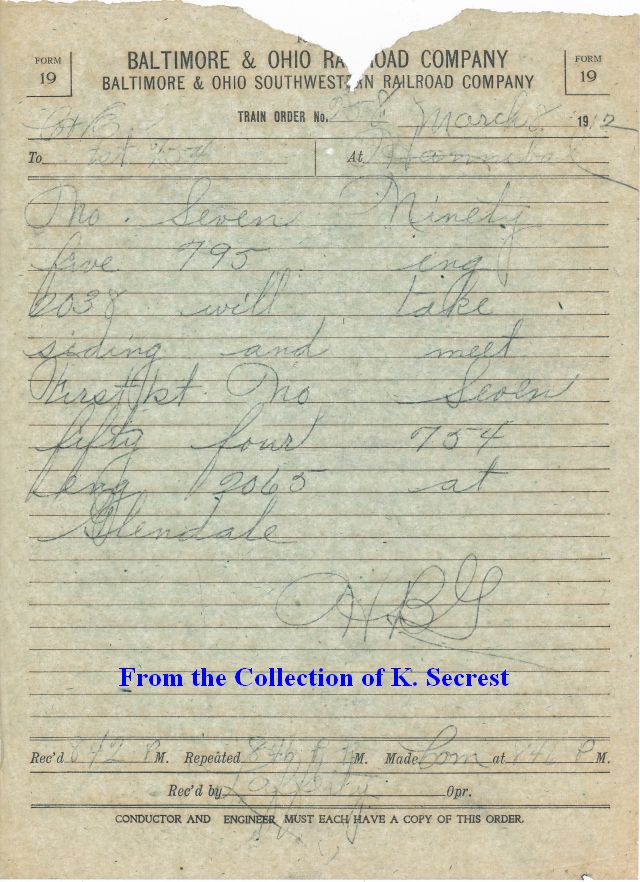 FORM
19
BALTIMORE & OHIO RAILROAD COMPANY
FORM
19
BALTIMORE & OHIO SOUTHWESTERN RAILROAD COMPANY
TRAIN ORDER No. 258 March 8 1912
C&E
To 1st 754 At
No. Seven Ninety
five 795 eng
2038 will take
siding and meet
First 1st No Seven
fifty four 754
eng 2065 at
Glendale
HBG
From the Collection of K. Secrest
Rec'd 842 P M. Repeated 846 P M. Made Com at P M.
Rec'd by Opr.
CONDUCTOR AND ENGINEER MUST EACH HAVE A COPY OF THIS ORDER.